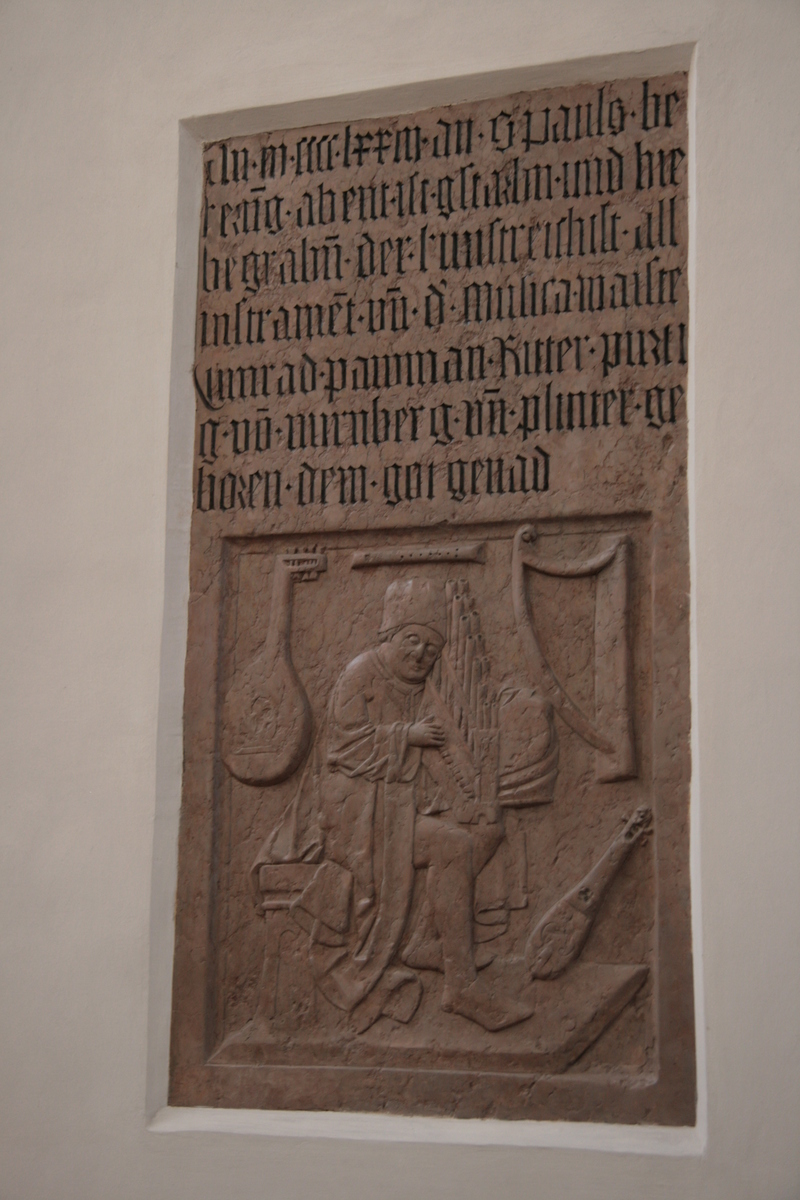 An·m·cccc·lxxiii·an·S·pauls·be
kerūg·abent·ist·gstarbm·und hie
begrabn̄·der·kunstreichist·all
instramēt·vn̄·d'·Musica·maiste
Cunrad·pawmān·Ritter·purti
g·vō·nurnberg·vn̄·plinter·ge
boren·dem·got genad